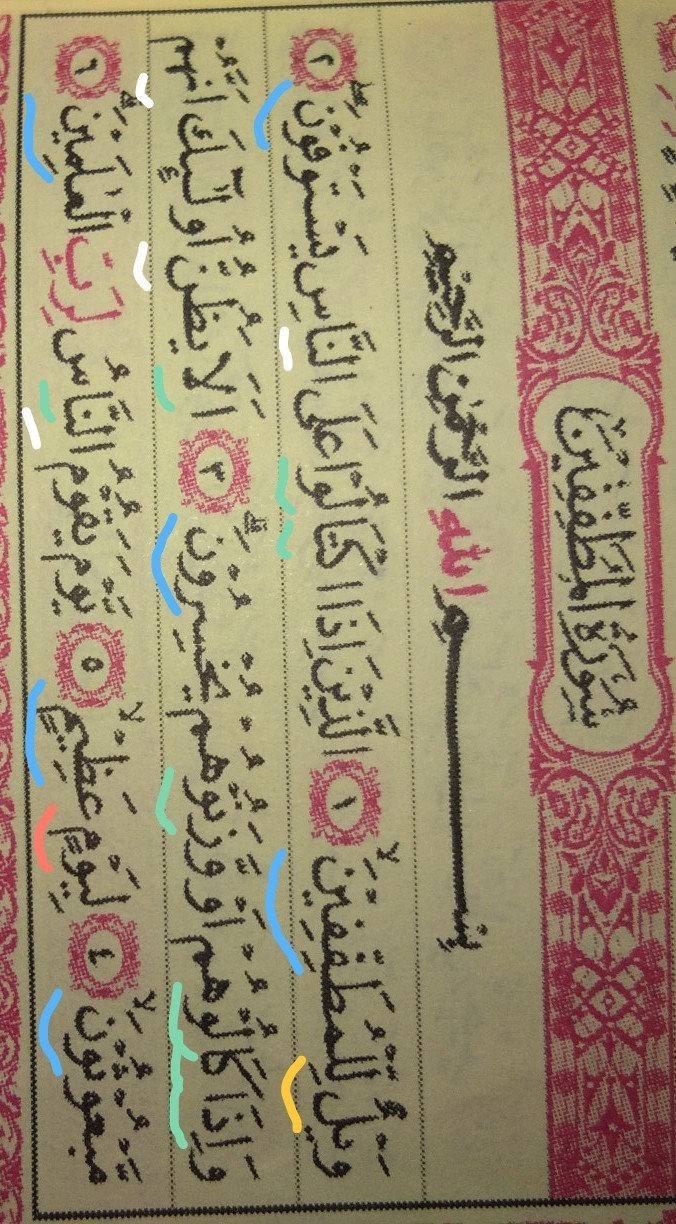 سُورَةُ الْمُطَفِّفِينَ
بِسْمِ اللهِ الرَّحْمٰنِ الرَّحِيمِ
وَيْلٌ لِلْمُطَفِّفِينَۙ ﴿١﴾ اَلَّذِينَ اِذَا اكْتَالُوا عَلَى النَّاسِ يَسْتَوْفُونَۘ ﴿٢﴾
وَاِذَا كَالُوهُمْ اَوْ وَزَنُوهُمْ يُخْسِرُونَۜ ﴿٣﴾ اَلَا يَظُنُّ اُولٰٓئِكَ اَنَّهُمْ
مَبْعُوثُونَۙ ﴿٤﴾ لِيَوْمٍ عَظِيمٍۙ ﴿٥﴾ يَوْمَ يَقُومُ النَّاسُ لِرَبِّ الْعٰلَمِينَۜ ﴿٦﴾